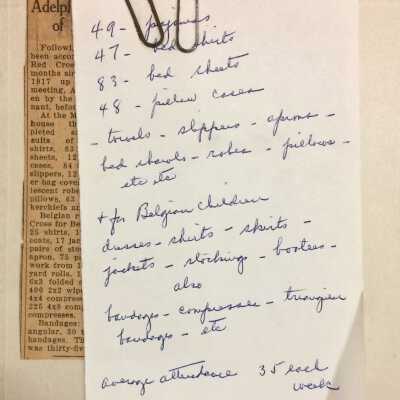 Adelph
of
Followi
been accor
Red Cross
months sir
1917 up
meeting, A
en by the
nant, before
At the M
house th
pleted a
suits of
shirts, 63
sheets, 12
cases, 84
slippers, 12
er bag cover
lescent robes
pillows, 63
kerchiefs an
Belgian r
Cross for Be
25 shirts, 1
coats, 17 jac
pairs of stoc
apron, 75 pa
work from 1
yard rolls, 1
6x3 folded c
400 2x2 wipe
4x4 compres
225 4x8 comp
compresses.
Bandages:
angular, 30 t
handages. Th
was thirty-five
49 - pajamas
47 - bed shirts
83 - bed sheets
48 - pillow cases
- towels - slippers - aprons -
bed shawls - robes - pillows -
etc etc
+ for Belgian children
dresses - shirts - skirts -
jackets - stockings - bootees -
also
bandages - compresses - triangular
bandages - etc
average attendance 35 each
week